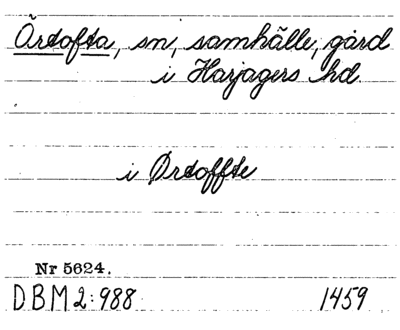 Örtofta, sn, samhälle, gård
i Harjagers hd.
i Ørtoffte
Nr 5624.
DBM 2:988 1459